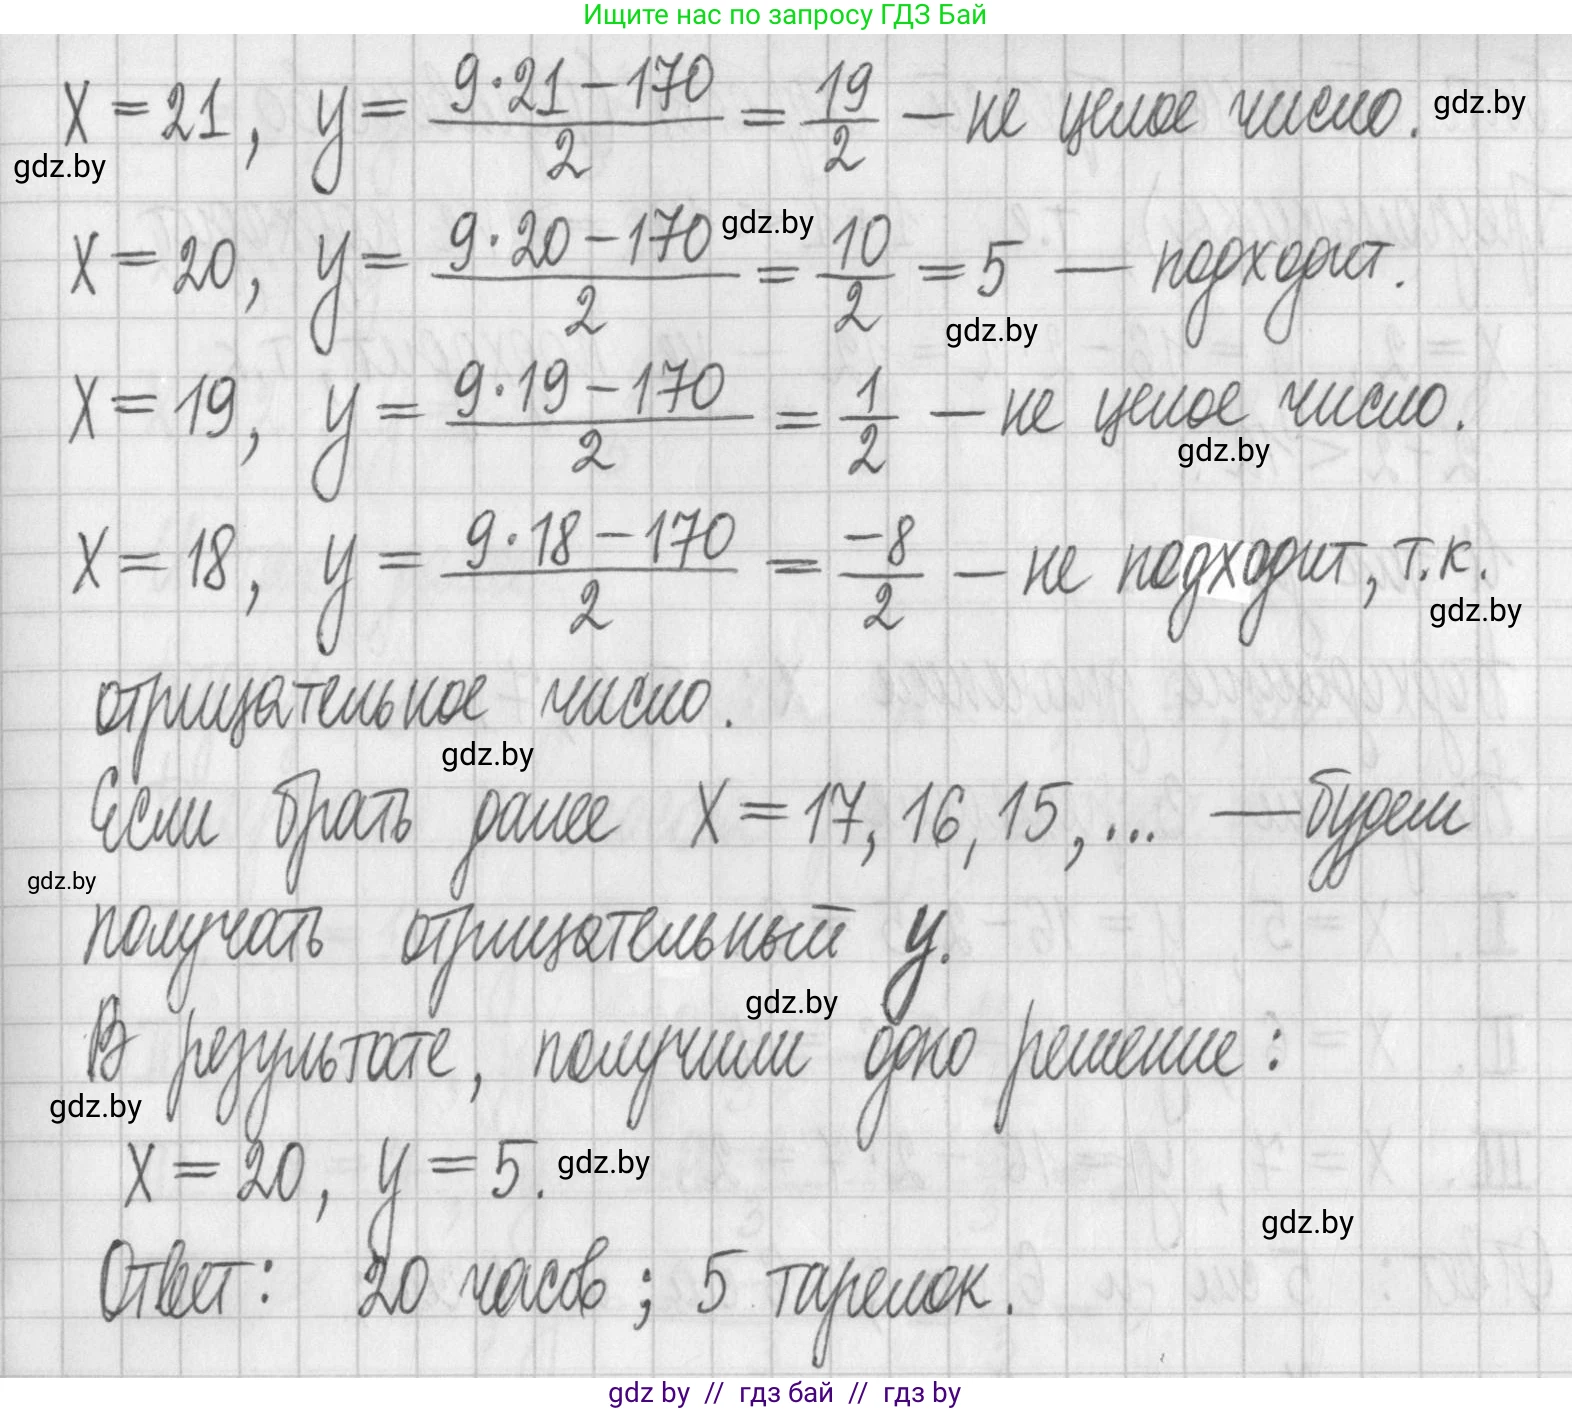 Ищите нас по запросу ГДЗ Бай
x = 21, y = (9·21 − 170)/2 = 19/2 — не целое число. gdz.by
gdz.by
x = 20, y = (9·20 − 170)/2 = 10/2 = 5 — подходит.
gdz.by
gdz.by
x = 19, y = (9·19 − 170)/2 = 1/2 — не целое число.
gdz.by
x = 18, y = (9·18 − 170)/2 = −8/2 — не подходит, т.к.
gdz.by
отрицательное число.
gdz.by
Если брать далее x = 17, 16, 15, ... — будем
gdz.by
получать отрицательный y.
gdz.by
В результате, получили одно решение:
gdz.by
x = 20, y = 5. gdz.by
gdz.by
Ответ: 20 часов; 5 тарелок.
gdz by // гдз бай // гдз by